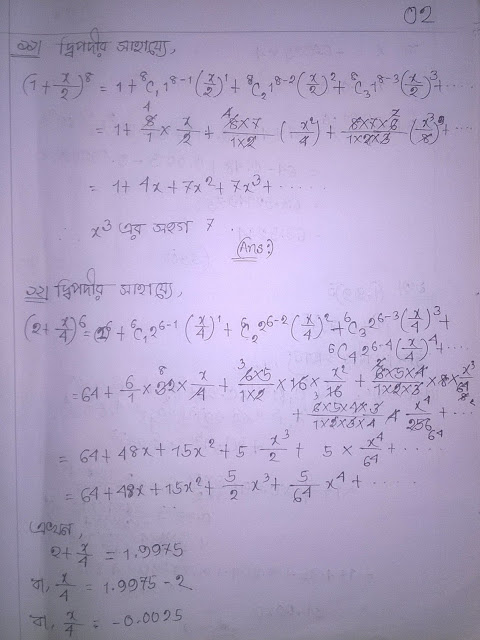 02
দ্বিপদীর সাহায্যে,
(1+x/2)⁸ = 1+⁸C₁1⁸⁻¹(x/2)¹+⁸C₂1⁸⁻²(x/2)²+⁸C₃1⁸⁻³(x/2)³+.....
= 1+8/1×x/2+8×7/1×2(x²/4)+8×7×6/1×2×3(x³/8)+...
= 1+4x+7x²+7x³+......
x³ এর সহগ 7.
(Ans:)
২২। দ্বিপদীর সাহায্যে,
(2+x/4)⁶ = 2⁶+⁶C₁2⁶⁻¹(x/4)¹+⁶C₂2⁶⁻²(x/4)²+⁶C₃2⁶⁻³(x/4)³+
⁶C₄2⁶⁻⁴(x/4)⁴+....
= 64+6/1×32×x/4+6×5/1×2×16×x²/16+6×5×4/1×2×3×8×x³/64
+6×5×4×3/1×2×3×4 4 x⁴/256+...
= 64+48x+15x²+5 x³/2+5×x⁴/64+....
= 64+48x+15x²+5/2x³+5/64x⁴+......
এখন,
2+x/4 = 1.9975
বা, x/4 = 1.9975-2
বা, x/4 = -0.0025